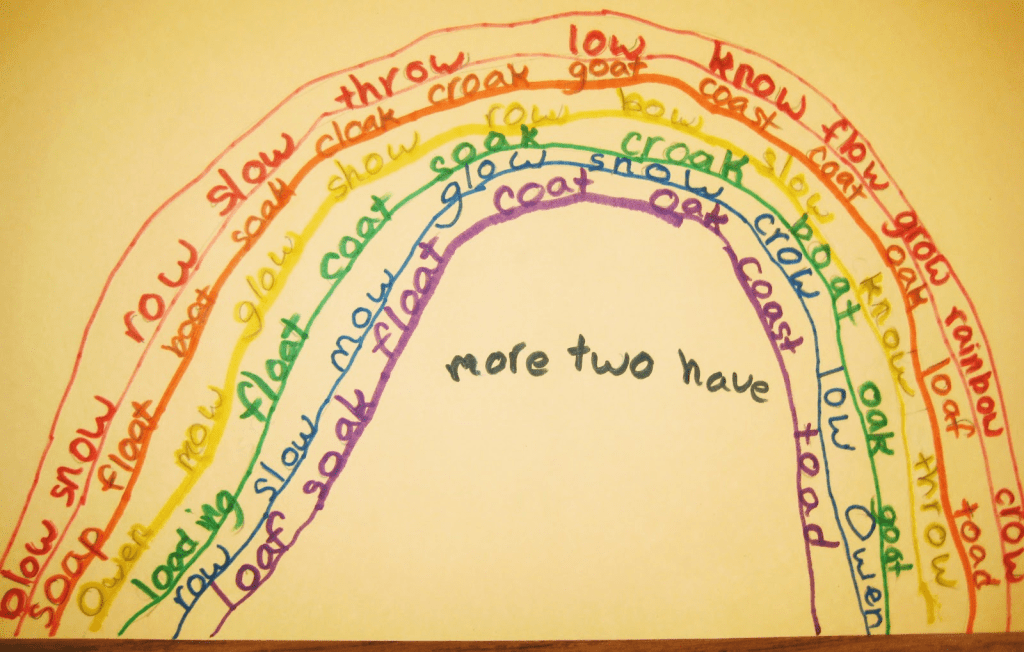 blow snow row slow throw low know flow grow rainbow crow
soap float boat soak cloak croak goat coast coat oak loaf toad
Owen mow glow show row bow slow know throw
loading float coat soak croak boat oak goat
row slow mow glow snow crow low Owen
loaf soak float coat oak coast toad
more two have